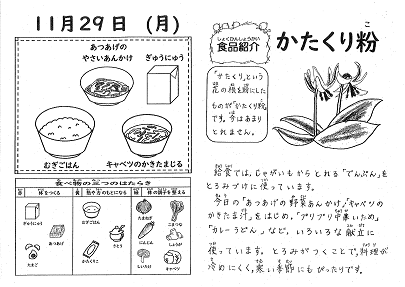 11月29日 (月)
あつあげの
やさいあんかけ
ぎゅうにゅう
むぎごはん
キャベツのかきたまじる
食べ物の三つのはたらき
赤 体をつくる
黄 熱や力のもとになる
緑 体の調子を整える
ぎゅうにゅう
あつあげ
たまご
むぎごはん
かたくりこ
さとう
たまねぎ
にんじん
しいたけ
こまつな
しょうが
キャベツ
しょくひんしょうかい
食品紹介
かたくり粉
こ
「かたくり」という
花の根を粉にした
ものが「かたくり粉」
です。今はあまり
とれません。
給食では、じゃがいもからとれる「でんぷん」を
とろみづけに使っています。
今日の「あつあげの野菜あんかけ」「キャベツの
かきたま汁」をはじめ、「プリプリ中華いため」
「カレーうどん」など、いろいろな献立に
使っています。とろみがつくことで、料理が
冷めにくく、寒い季節にもぴったりです。